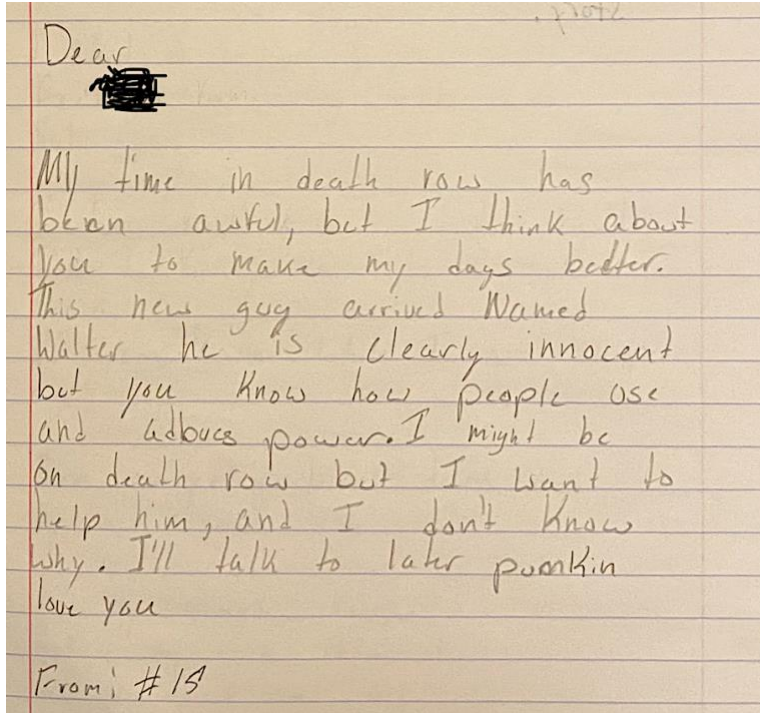 Story.
Dear
My time in death row has
been awful, but I think about
you to make my days better.
This new guy arrived Named
Walter he is clearly innocent
but you know how people use
and adbucs power. I might be
on death row but I want to
help him, and I don't know
why. I'll talk to later pumkin
love you
From: #15